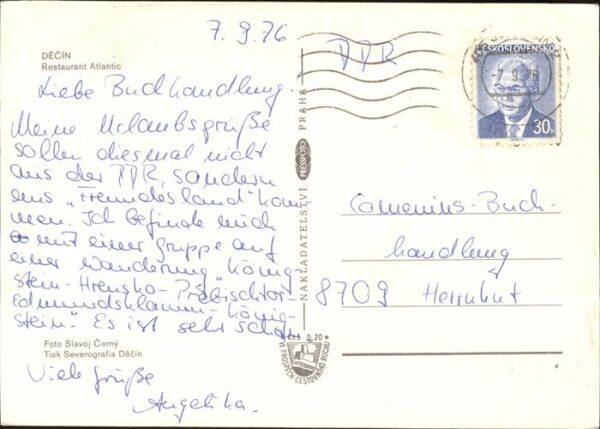 7. 9. 76
DĚČÍN
Restaurant Atlantic
Liebe Buchhandlung.
Meine Urlaubsgrüße
sollen diesmal nicht
aus der ČSSR, sondern
aus „Freundesland" kom-
men. Ich befinde mich
mit einer Gruppe auf
einer Wanderung „König-
stein-Hrensko-Prebischtor-
Edmundsklamm-König-
stein." Es ist sehr schön
Foto Slavoj Černý
Tisk Severografia Děčín
Viele Grüße
Angelika.
NAKLADATELSTVÍ PRESSFOTO PRAHA
Kčs 0,20
VE PROSPĚCH CESTOVNÍHO RUCHU
ČESKOSLOVENSKO
-7.9.76
30h
Comenius-Buch-
handlung
8709 Herrnhut